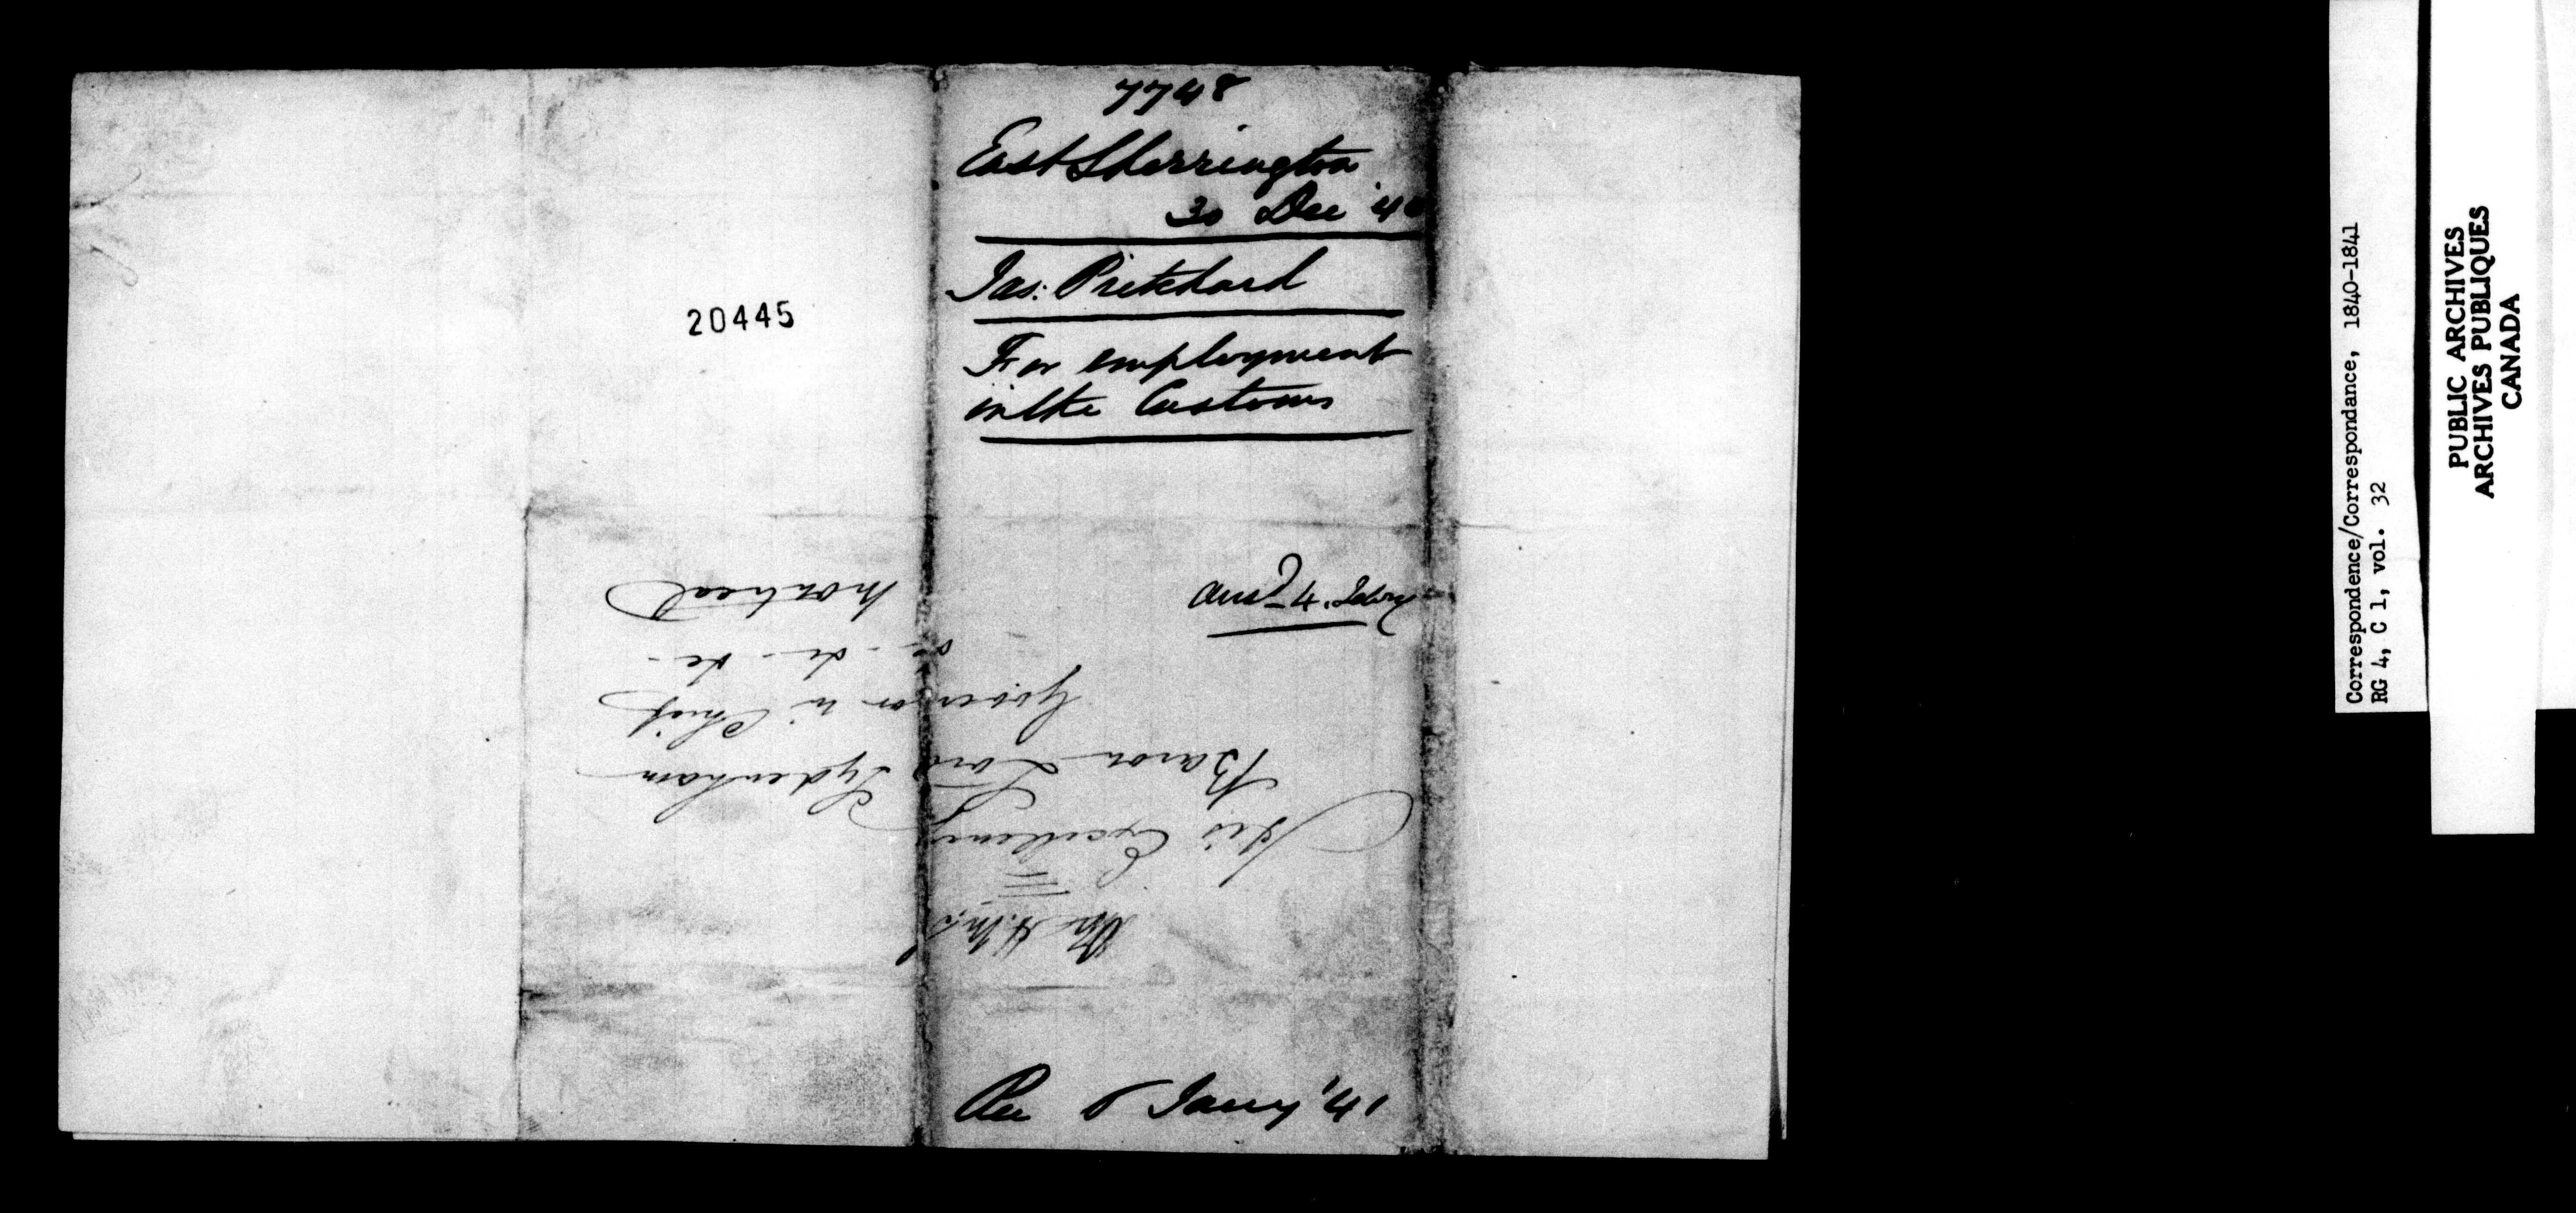 7748
East Sherrington
30 Dec '40
Jas: Pritchard
For employment
in the Customs
ansd 4. Febry
Rec 8 Jany '41
20445
On H.M.S.
His Excellency
Baron Lord Sydenham
Governor in Chief
&c - de - de -
Montreal
Correspondence/Correspondance, 1840-1841
RG 4, C 1, vol. 32
PUBLIC ARCHIVES
ARCHIVES PUBLIQUES
CANADA